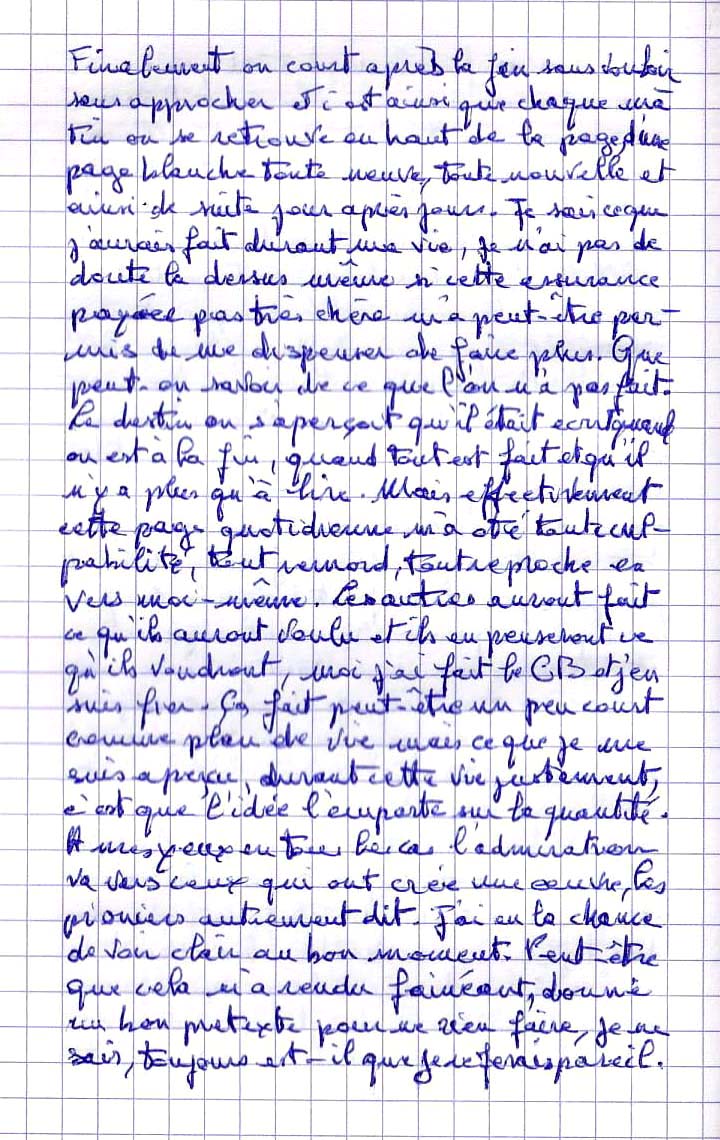 Finalement on court après la fin sans vouloir
s'en approcher et c'est ainsi que chaque ma
tin on se retrouve en haut de la page, d'une
page blanche toute neuve, toute nouvelle et
ainsi de suite jour après jour. Je sais ce que
j'aurais fait durant ma vie, je n'ai pas de
doute la dessus même si cette assurance
payée pas très chère m'a peut-être per-
mis de me dispenser de faire plus. Que
peut-on savoir de ce que l'on n'a pas fait.
Le destin on s'aperçoit qu'il était ecrit quand
on est à la fin, quand tout est fait et qu'il
n'y a plus qu'à lire. Mais effectivement
cette page quotidienne m'a oté toute cul-
pabilité, tout remord, tout reproche en
vers moi-même. Les autres auront fait
ce qu'ils auront voulu et ils en penseront ce
qu'ils voudront, moi j'ai fait le CB et j'en
suis fier. Ça fait peut-être un peu court
comme plan de vie mais ce que je me
suis aperçu, durant cette vie justement,
c'est que l'idée l'emporte sur la quantité.
A mes yeux en tous les cas l'admiration
va vers ceux qui ont crée une oeuvre, les
pioniers autrement dit. J'ai eu la chance
de voir clair au bon moment. Peut-être
que cela m'a rendu fainéant, donné
un bon pretexte pour ne rien faire, je ne
sais, toujours est-il que je referais pareil.